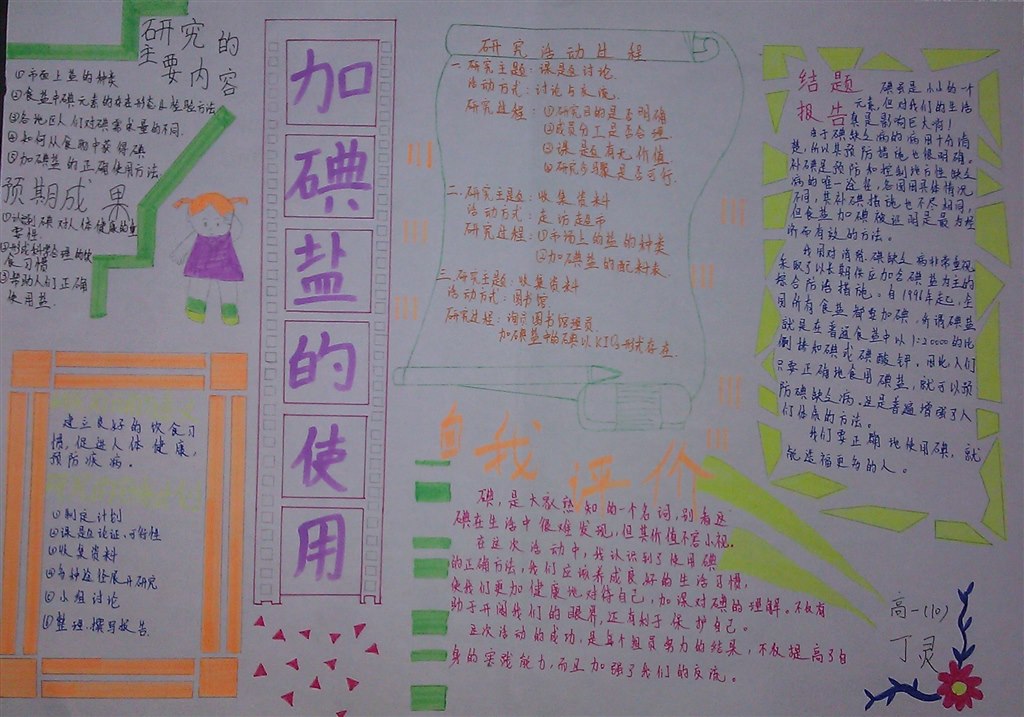 研究的
主要内容
①市面上盐的种类
②食盐中碘元素的存在形态及检验方法
③各地区人们对碘需求量的不同.
④如何从食物中获得碘
⑤加碘盐的正确使用方法.
预期成果
①认识到碘对人体健康的重
要性
②形成科学合理的饮
食习惯
③帮助人们正确
使用盐.
建立良好的饮食习
惯,促进人体健康,
预防疾病。
①制定计划
②课题论证、可行性
③收集资料
④多种途径展开研究
⑤小组讨论
⑥整理、撰写报告
加碘盐的使用
研究活动过程
一.研究主题:课题讨论.
活动方式:讨论与交流.
研究过程:①研究目的是否明确
②成员分工是否合理
③课题有无价值.
④研究步骤是否可行.
二.研究主题:收集资料
活动方式:走访超市
研究过程:①市场上的盐的种类
②加碘盐的配料表.
三.研究主题:收集资料
活动方式:图书馆.
研究过程:询问图书馆管理员
加碘盐中的碘以KIO3形式存在.
自我评价
碘,是大家熟知的一个名词,别看这
碘在生活中很难发现,但其价值不容小视.
在这次活动中,我认识到了使用碘
的正确方法,我们应该养成良好的生活习惯,
使我们更加健康地对待自己,加深对碘的理解.不仅有
助于开阔我们的眼界,还有利于保护自己。
这次活动的成功,是每个组员努力的结果,不仅提高了自
身的实践能力,而且加强了我们的交流。
结题
报告
碘虽是小小的一个
元素,但对我们的生活
真是影响巨大啊!
由于碘缺乏病的病因十分清
楚,所以其预防措施也很明确。
补碘是预防和控制地方性缺乏
病的唯一途径,各国因具体情况
不同,其补碘措施也不尽相同,
但食盐加碘被证明是最为经
济而有效的方法。
我国对消除碘缺乏病非常重视
采取了以长期供应加含碘盐为主的
综合防治措施。自1996年起,全
国所有食盐都要加碘,所谓碘盐
就是在普通食盐中以1:20000的比
例掺和碘或碘酸钾,因此人们
只要正确地食用碘盐,就可以预
防碘缺乏病.这是普遍增强了人
们体质的方法。
我们要正确地使用碘,就
能造福更多的人。
高一(10)
丁灵